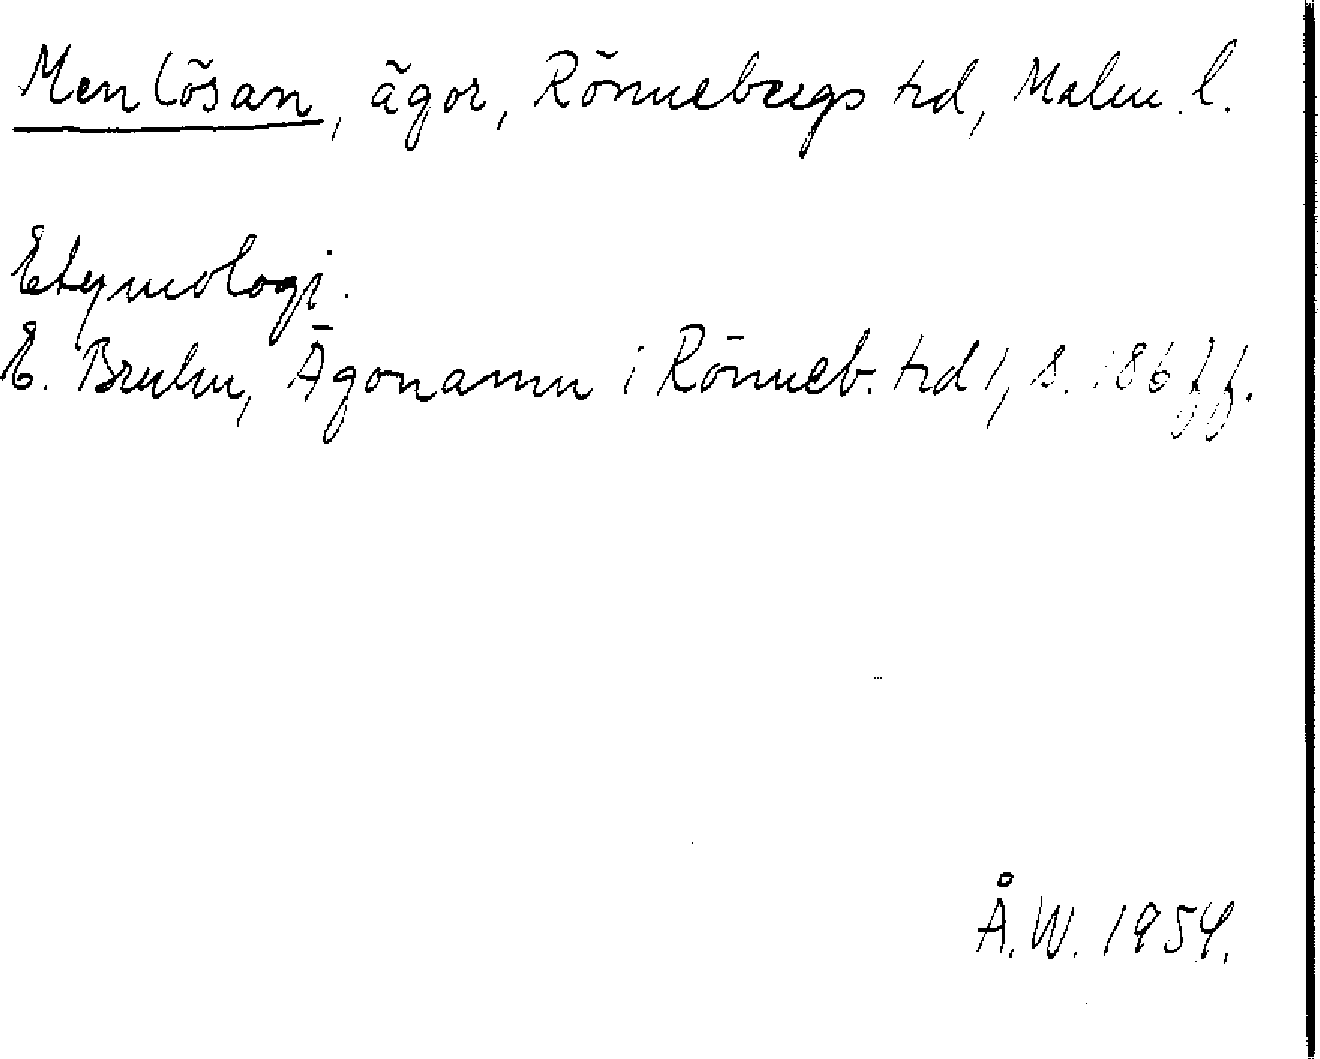 Menlösan, ägor, Rönnebergs hd, Malm. l.
Etymologi.
E. Bruhn, Ägonamn i Rönneb. hd 1, s. 186 ff.
Å.W. 1954.